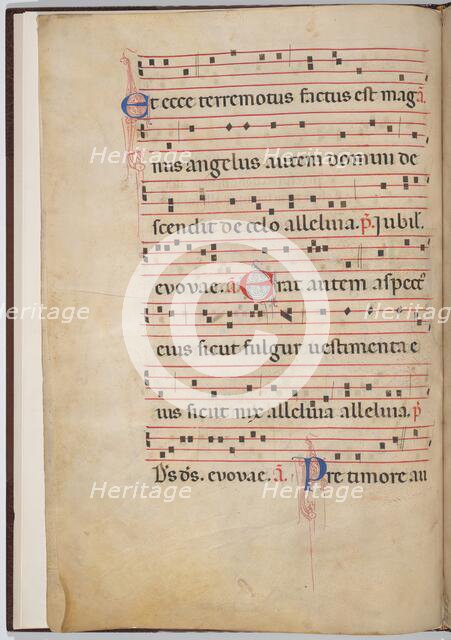 Et ecce terremotus factus est mag ā
nus angelus autem domini de
scendit de celo alleluia. p̄. Jubil'.
evovae. ā Erat autem aspect᷒
eius sicut fulgur vestimenta e
ius sicut nix alleluia alleluia. p̄
D̄s d̄s. evovae. ā. Pre timore au
Heritage Heritage Heritage
Heritage Heritage Heritage
Heritage Heritage Heritage